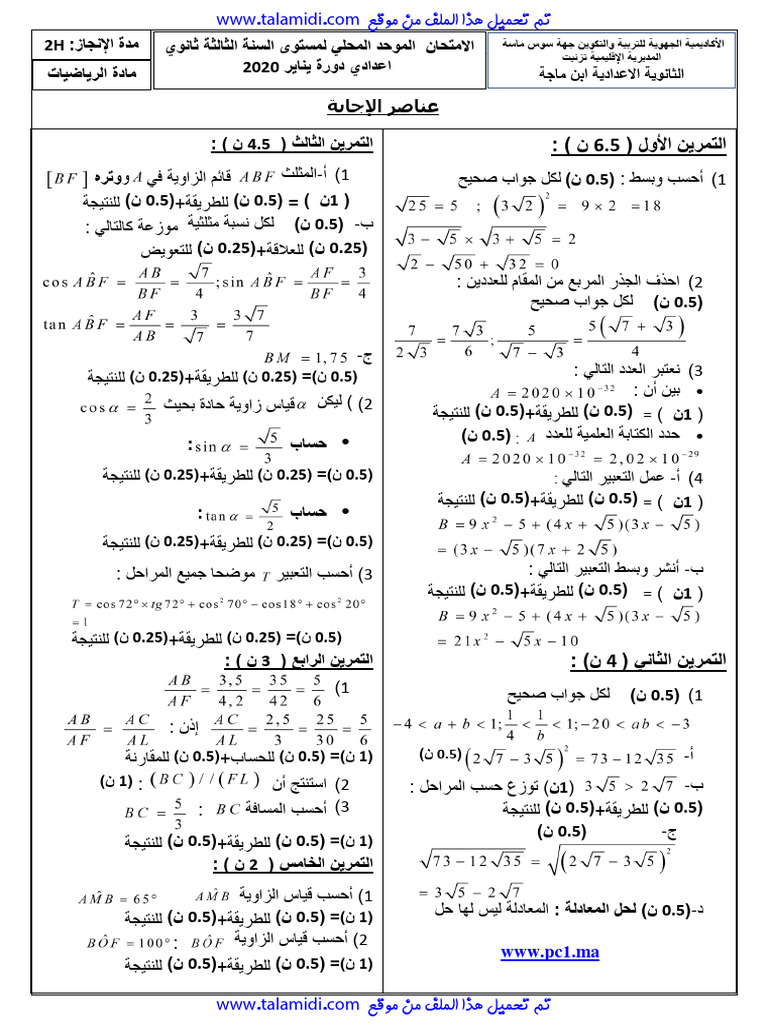 تم تحميل هذا الملف من موقع www.talamidi.com
الأكاديمية الجهوية للتربية والتكوين جهة سوس ماسة
المديرية الإقليمية تزنيت
الثانوية الاعدادية ابن ماجة
الامتحان الموحد المحلي لمستوى السنة الثالثة ثانوي
اعدادي دورة يناير 2020
مدة الإنجاز: 2H
مادة الرياضيات
عناصر الإجابة
التمرين الأول ( 6.5 ن ) :
1) أحسب وبسط : (0.5 ن) لكل جواب صحيح
√25 = 5 ; (3√2)² = 9 × 2 = 18
√3 − √5 × √3 + √5 = 2
√2 − √50 + √32 = 0
2) احذف الجذر المربع من المقام للعددين :
(0.5 ن) لكل جواب صحيح
7/2√3 = 7√3/6 ; 5/√7 − √3 = 5(√7 + √3)/4
3) نعتبر العدد التالي :
• بين أن : A = 2020 × 10⁻³²
( 1ن ) = (0.5 ن) للطريقة+(0.5 ن) للنتيجة
• حدد الكتابة العلمية للعدد A : (0.5 ن)
A = 2020 × 10⁻³² = 2,02 × 10⁻²⁹
4) أ- عمل التعبير التالي :
( 1ن ) = (0.5 ن) للطريقة+(0.5 ن) للنتيجة
B = 9x² − 5 + (4x + √5)(3x − √5)
= (3x − √5)(7x + 2√5)
ب- أنشر وبسط التعبير التالي :
( 1ن ) = (0.5 ن) للطريقة+(0.5 ن) للنتيجة
B = 9x² − 5 + (4x + √5)(3x − √5)
= 21x² − √5x − 10
التمرين الثاني ( 4 ن) :
1) (0.5 ن) لكل جواب صحيح
−4 < a + b < 1; 1/4 < 1/b < 1; −20 < ab < −3
أ- (2√7 − 3√5)² = 73 − 12√35 (0.5 ن)
ب- 3√5 > 2√7 (1ن) توزع حسب المراحل :
(0.5 ن) للطريقة+(0.5 ن) للنتيجة
ج- (0.5 ن)
√73 − 12√35 = √(2√7 − 3√5)²
= 3√5 − 2√7
د-(0.5 ن) لحل المعادلة : المعادلة ليس لها حل
www.pc1.ma
التمرين الثالث ( 4.5 ن ) :
1) أ-المثلث ABF قائم الزاوية في A ووتره [BF]
( 1ن ) = (0.5 ن) للطريقة+(0.5 ن) للنتيجة
ب- (0.5 ن) لكل نسبة مثلثية موزعة كالتالي :
(0.25 ن) للعلاقة+(0.25 ن) للتعويض
cos AB̂F = AB/BF = √7/4 ; sin AB̂F = AF/BF = 3/4
tan AB̂F = AF/AB = 3/√7 = 3√7/7
ج- BM = 1,75
(0.5 ن)= (0.25 ن) للطريقة+(0.25 ن) للنتيجة
2) ( ليكن α قياس زاوية حادة بحيث cos α = 2/3
• حساب sin α = √5/3 :
(0.5 ن)= (0.25 ن) للطريقة+(0.25 ن) للنتيجة
• حساب tan α = √5/2 :
(0.5 ن)= (0.25 ن) للطريقة+(0.25 ن) للنتيجة
3) أحسب التعبير T موضحا جميع المراحل :
T = cos72° × tg72° + cos²70° − cos18° + cos²20°
= 1
(0.5 ن)= (0.25 ن) للطريقة+(0.25 ن) للنتيجة
التمرين الرابع ( 3 ن ) :
1) AB/AF = 3,5/4,2 = 35/42 = 5/6
AC/AL = 2,5/3 = 25/30 = 5/6 إذن : AB/AF = AC/AL
(1 ن)= (0.5 ن) للحساب+(0.5 ن) للمقارنة
2) استنتج أن (BC)//(FL) : (1 ن)
3) أحسب المسافة BC : BC = 5/3
(1 ن)= (0.5 ن) للطريقة+(0.5 ن) للنتيجة
التمرين الخامس ( 2 ن ) :
1) أحسب قياس الزاوية AM̂B AM̂B = 65°
(1 ن)= (0.5 ن) للطريقة+(0.5 ن) للنتيجة
2) أحسب قياس الزاوية BÔF : BÔF = 100°
(1 ن)= (0.5 ن) للطريقة+(0.5 ن) للنتيجة
تم تحميل هذا الملف من موقع www.talamidi.com